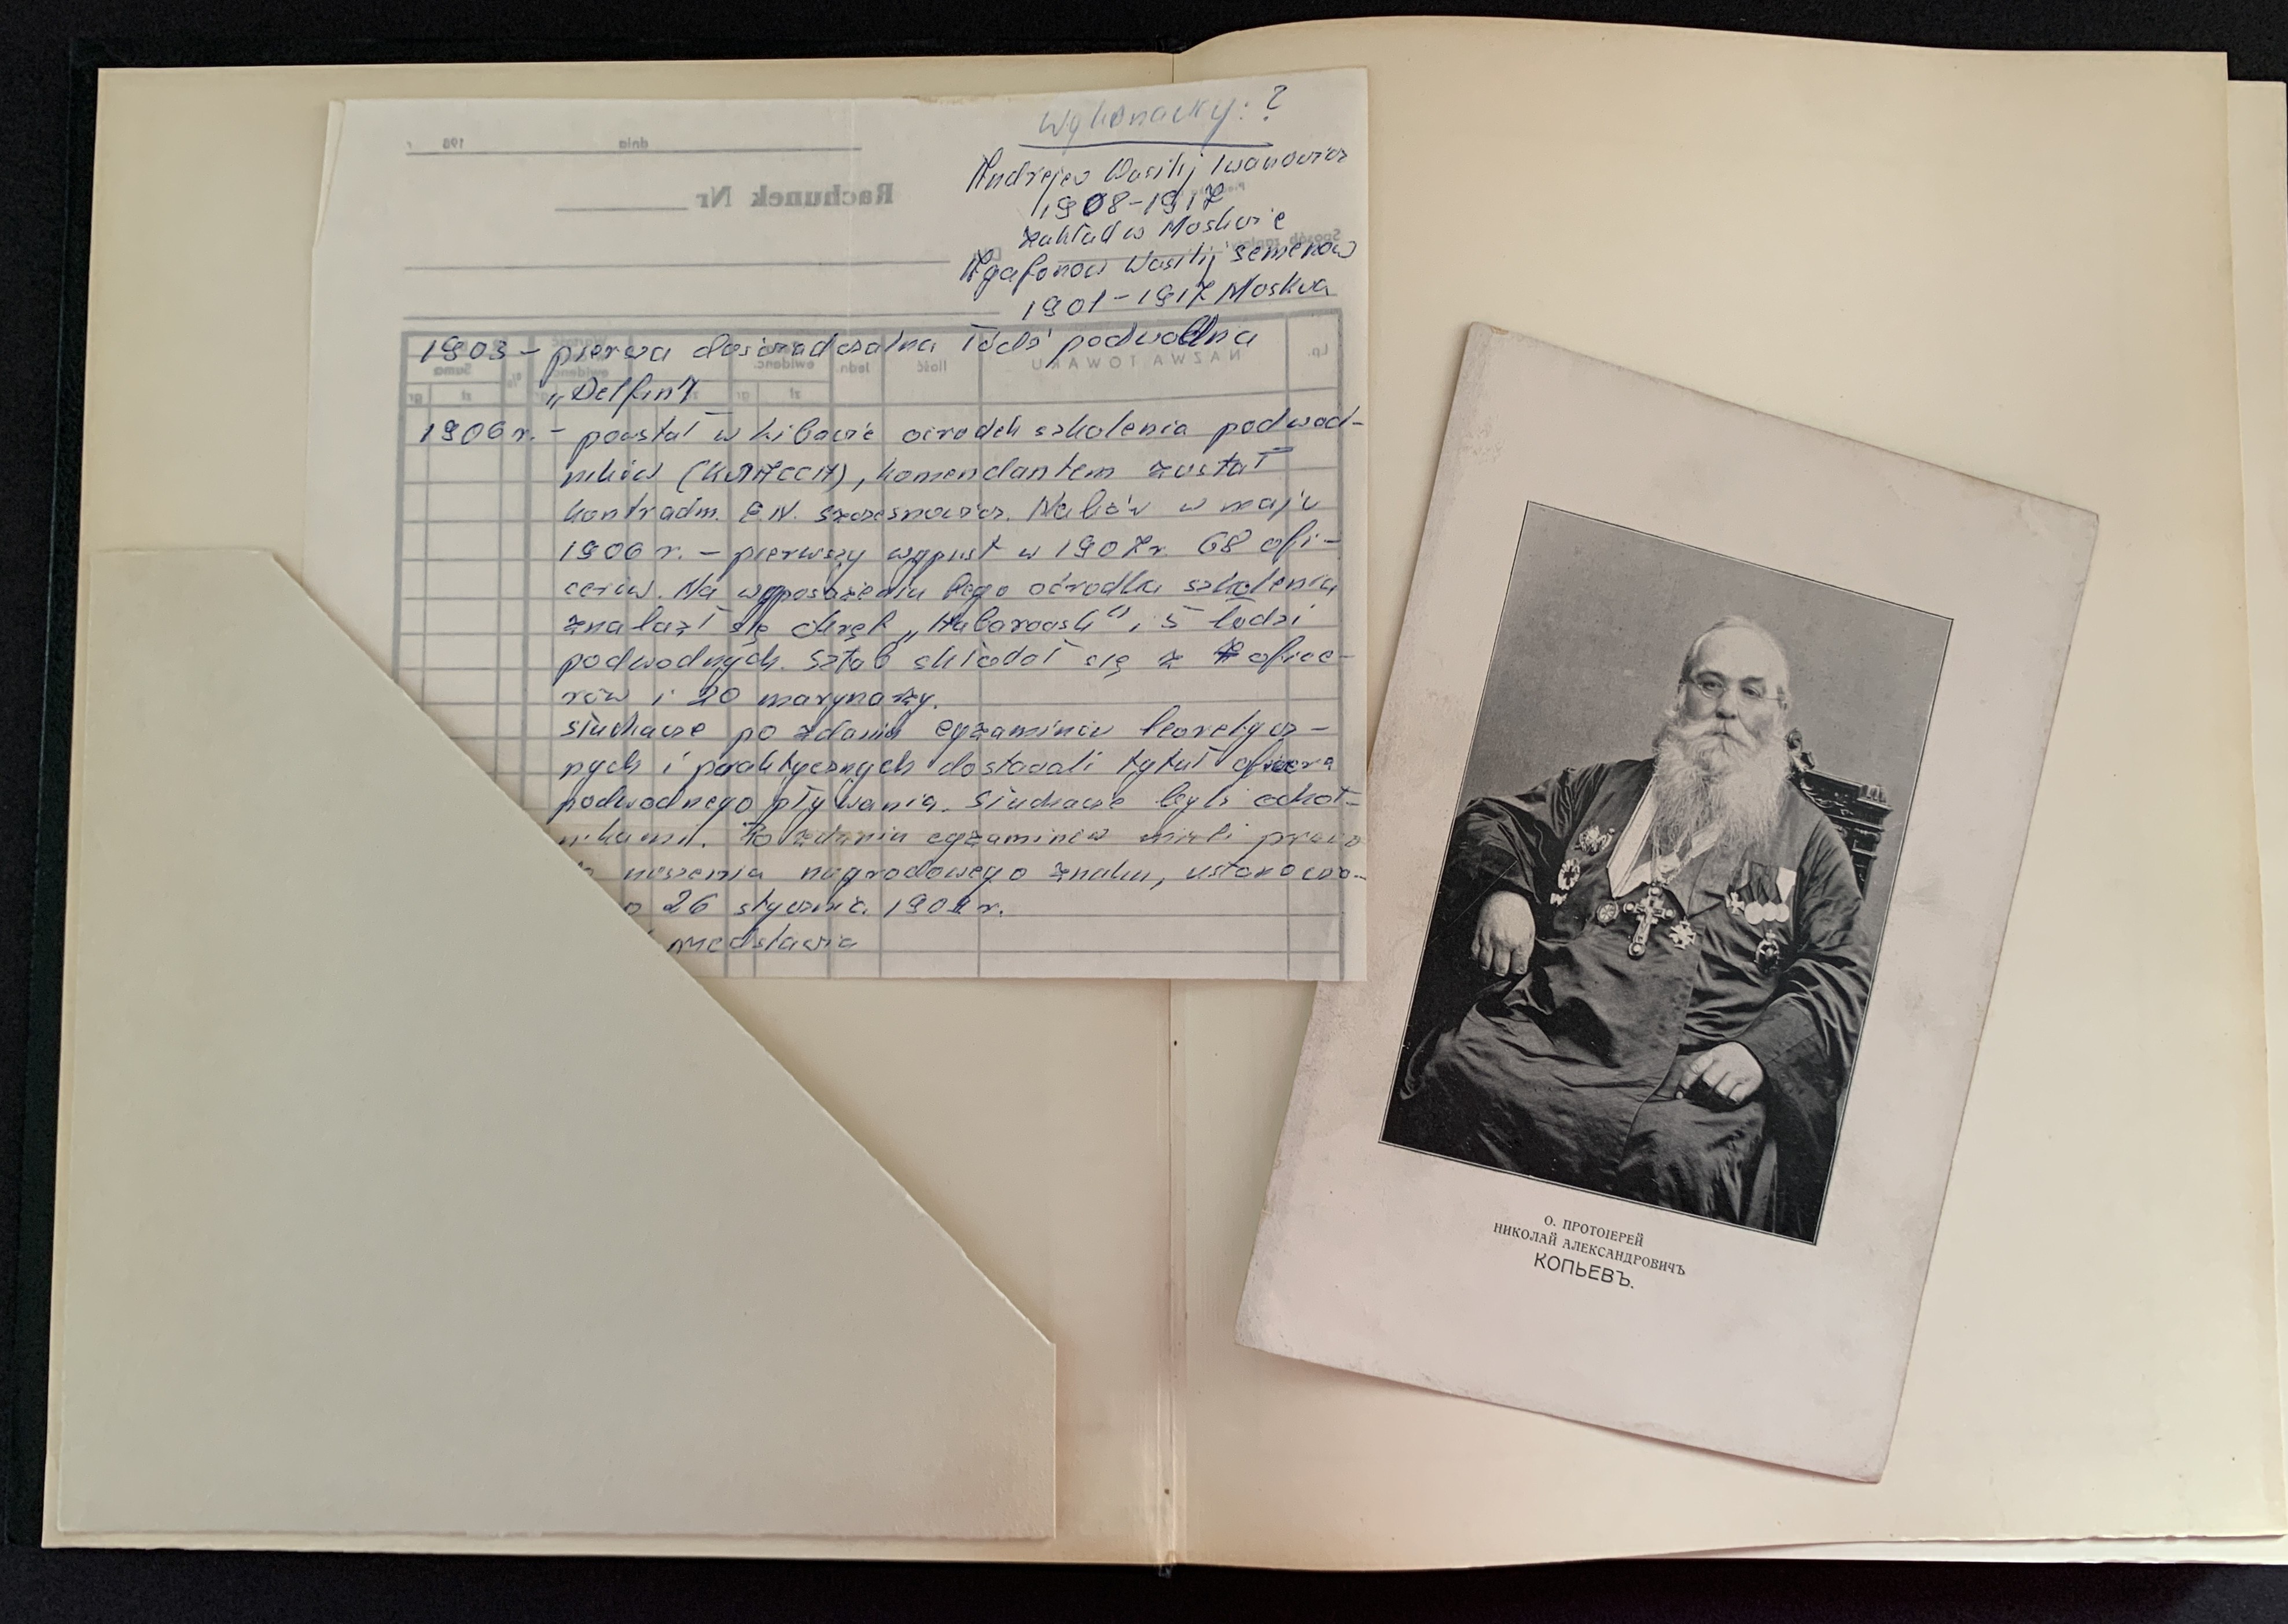 Wykonawcy: ?
Andrejew Wasilij Iwanowicz
1908-1917
zakład w Moskwie
Agafonow Wasilij Semenow
1901-1917 Moskwa
198
dnia
Rachunek Nr
Sposób zapłaty
1903 - pierwsza doświadczalna łódź podwodna
NAZWA TOWARU
Lp.
Ilość
Jedn.
ewidenc.
Suma
zł
gr
„Delfin"
1906 r. - powstał w Libawie ośrodek szkolenia podwod-
ników (          ), komendantem został
kontradm. E.N. Szczesnowicz. Nabór w maju
1906 r. - pierwszy wypust w 1907 r. 68 ofi-
cerów. Na wyposażeniu tego ośrodka szkolenia
znalazł się okręt „Habarowsk", 5 łodzi
podwodnych. Sztab składał się z 7 ofice-
rów i 20 marynarzy.
Słuchacze po zdaniu egzaminów teoretycz-
nych i praktycznych dostawali tytuł oficera
podwodnego pływania. Słuchacze byli ochot-
nikami. Po zdaniu egzaminów mieli prawo
noszenia nagrodowego znaku, ustanowio-
o 26 stycznia 1909 r.
przedstawia
О. ПРОТОІЕРЕЙ
НИКОЛАЙ АЛЕКСАНДРОВИЧЪ
КОПЬЕВЪ.